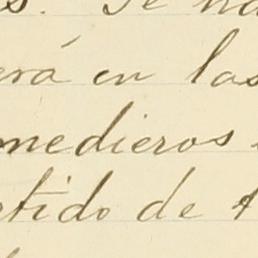 s. Se ha
erá en las
medieros
rtido de